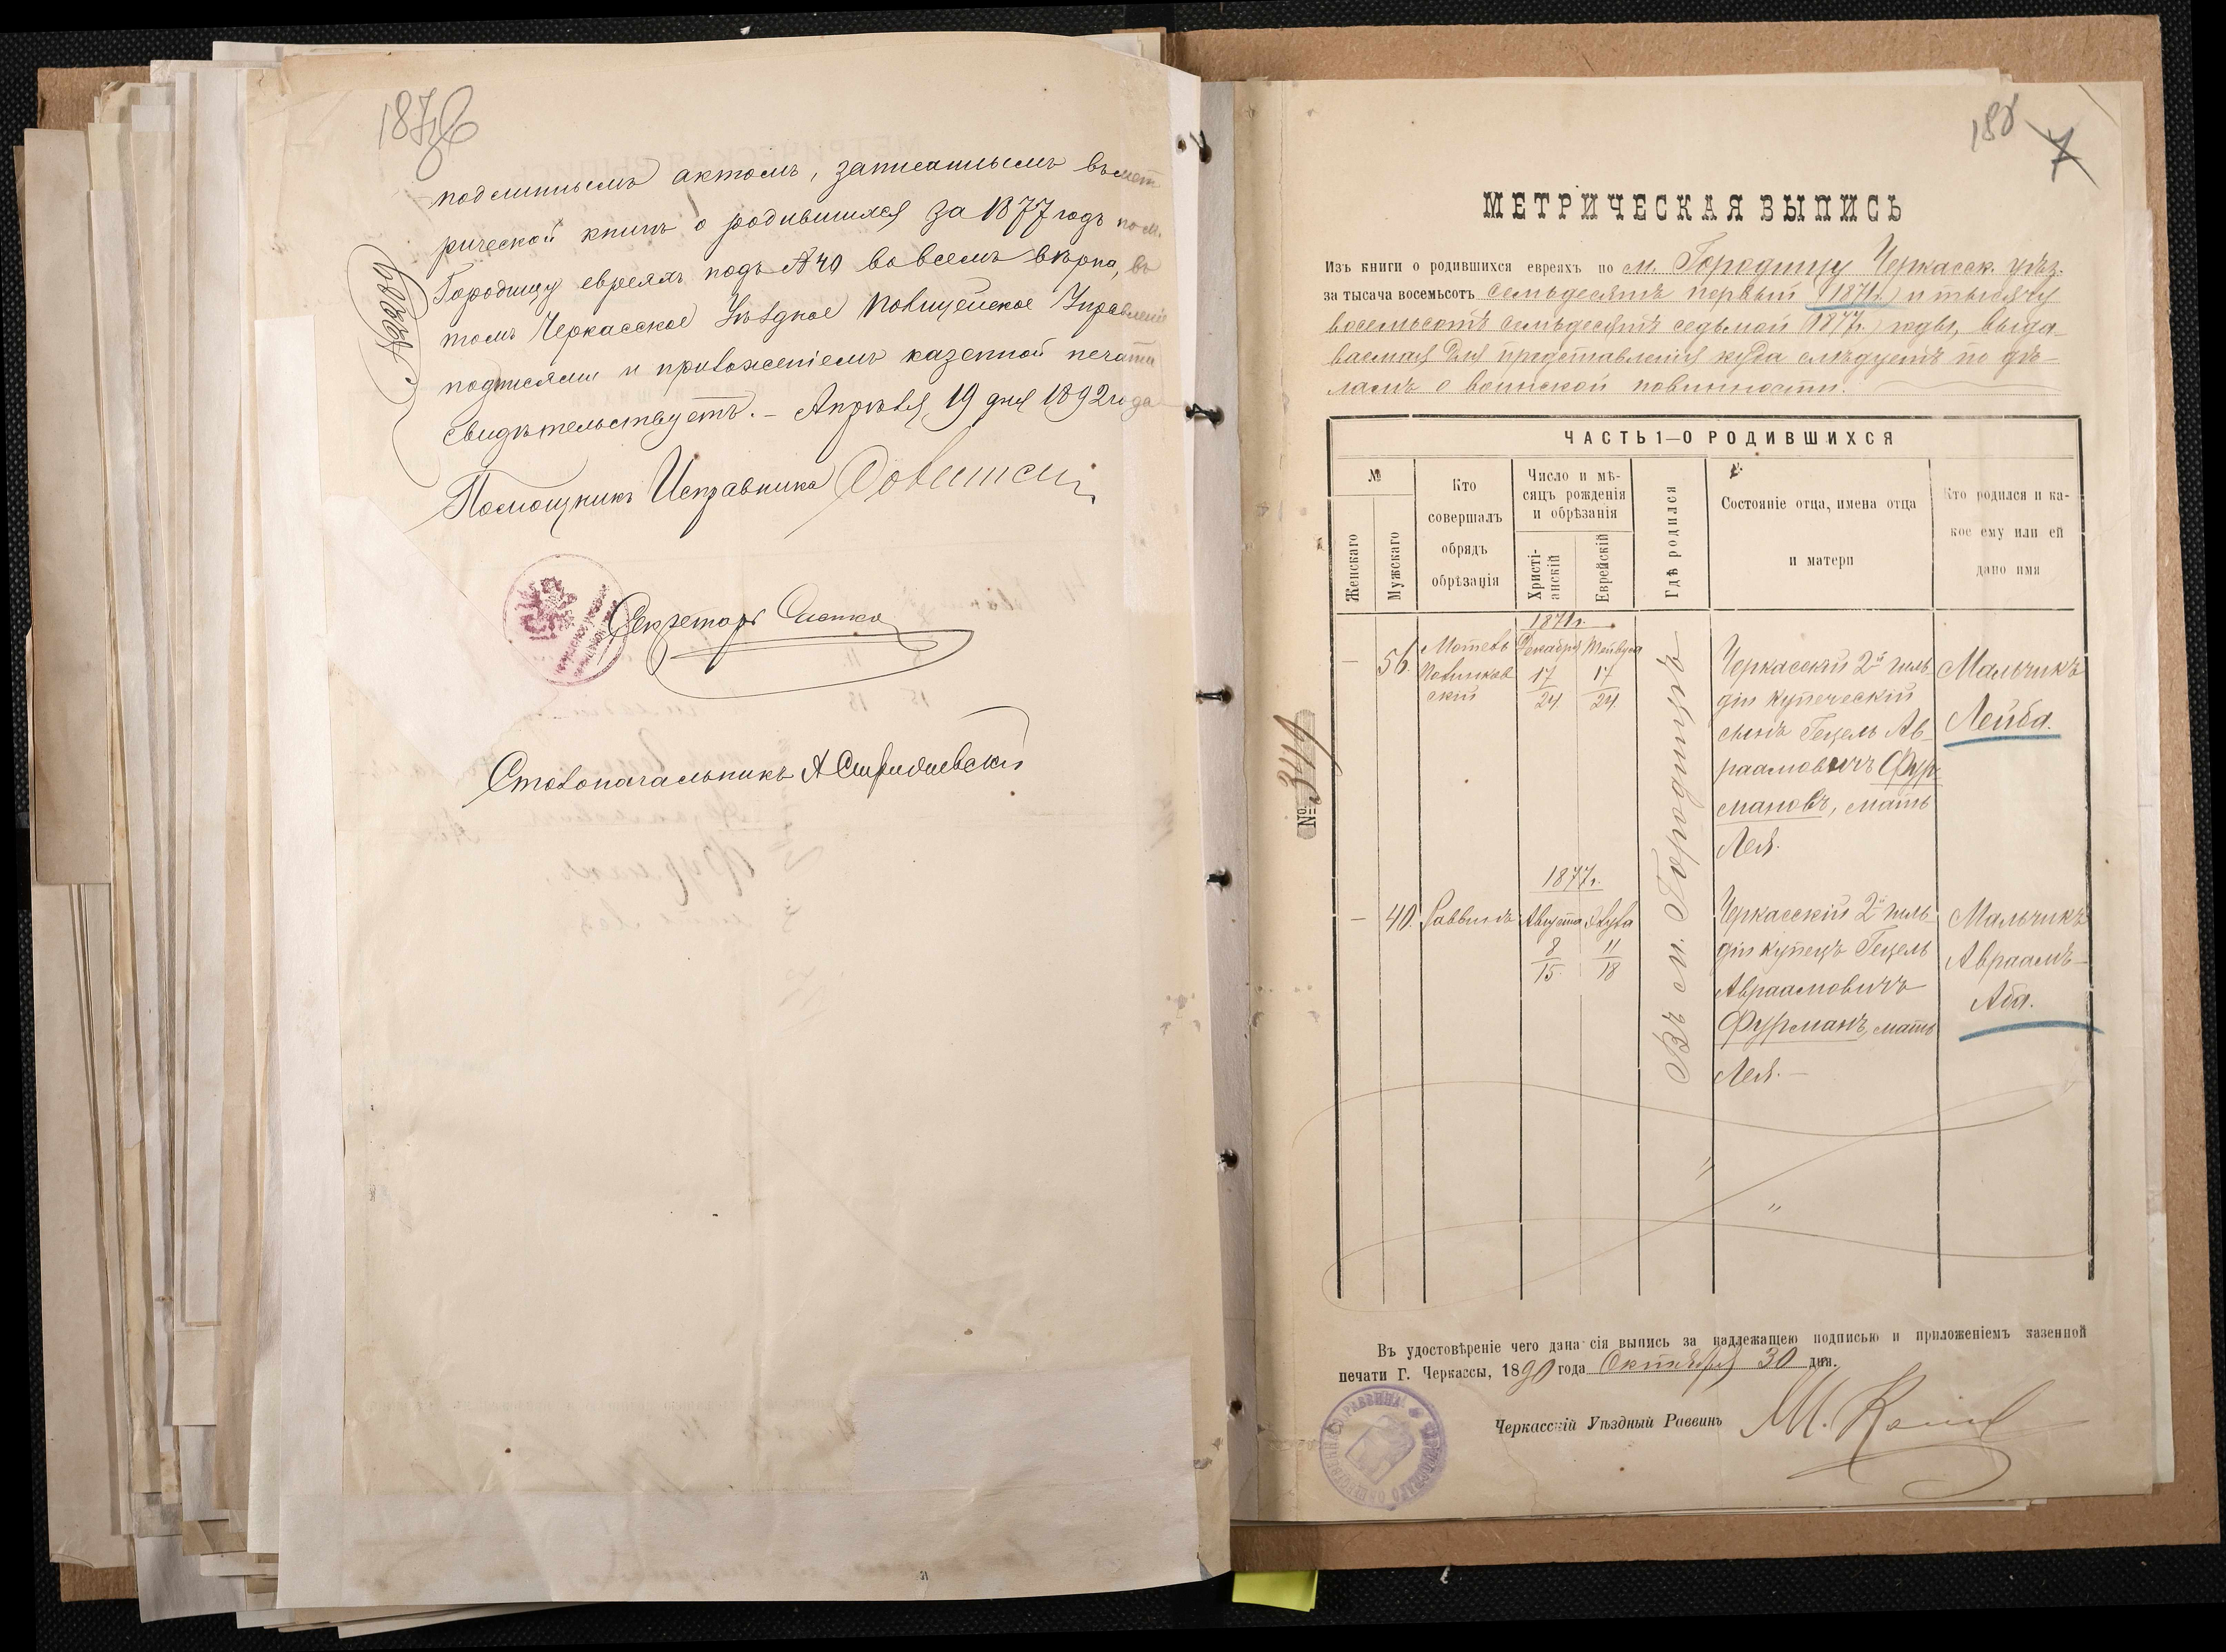 187об
подлиннымъ актомъ, записаннымъ въ мет
рической книгѣ о родившихся за 1877 годъ по м.
Городищу евреяхъ подъ №40 во всемъ вѣрна, въ
томъ Черкасское Уѣздное Полицейское Управленіе
подписями и приложеніемъ казенной печати
свидѣтельствуетъ. – Апрѣля 19 дня 1892 года
Помощникъ Исправника
Секретарь
Столоначальникъ
188
7
МЕТРИЧЕСКАЯ ВЫПИСЬ
Изъ книги о родившихся евреяхъ по м. Городищу Черкасск. уѣз.
за тысяча восемьсотъ семьдесятъ первый (1871 г.) и тысячу
восемьсотъ семьдесятъ седьмой (1877 г.) годы, выда
ваемая для представленія куда слѣдуетъ по дѣ–
ламъ о воинской повинности.
ЧАСТЬ 1—О РОДИВШИХСЯ
№
Женскаго
Мужскаго
Кто
совершалъ
обрядъ
обрѣзанія
Число и мѣ-
сяцъ рожденія
и обрѣзанія
Христі-
анскій
Еврейскій
Гдѣ родился
Состояніе отца, имена отца
и матери
Кто родился и ка-
кое ему или ей
дано имя
1871 г.
— 56. Мотель Декабря Тейвуса Черкасскій 2й гиль Мальчикъ
Новинков 17 17 діи купеческій
скій 24 24 сынъ Гецель Ав– Лейба.
раамовичъ Фур
мановъ, мать
Лея.
Въ м. Городищѣ
1877 г.
— 40. Раввинъ Августа Элула Черкасскій 2й гиль Мальчикъ
8 11 діи купецъ Гецель Авраамъ–
15. 18 Авраамовичъ Аба.
Фурманъ, мать
Лея. —
№ 3449
Въ удостовѣреніе чего дана сія выпись за надлежащею подписью и приложеніемъ казенной
печати Г. Черкассы, 1890 года Октября 30 дня.
Черкасскій Уѣздный Раввинъ